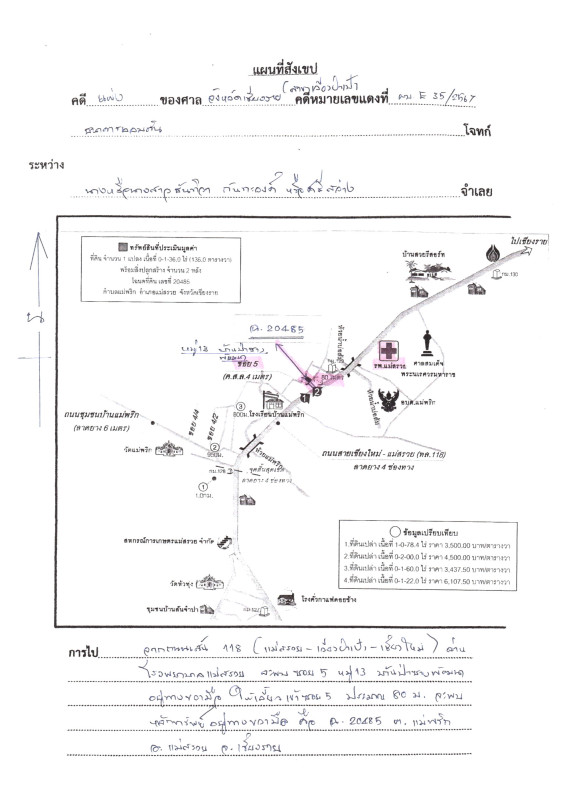 แผนที่สังเขป
คดี แพ่ง ของศาล จังหวัดเชียงราย (สาขาเวียงป่าเป้า) คดีหมายเลขแดงที่ ผบ E 35/2567
ธนาคารออมสิน โจทก์
ระหว่าง
จำเลย
ทรัพย์สินที่ประเมินมูลค่า
ที่ดิน จำนวน 1 แปลง เนื้อที่ 0-1-36.0 ไร่ (136.0 ตารางวา)
พร้อมสิ่งปลูกสร้าง จำนวน 2 หลัง
โฉนดที่ดิน เลขที่ 20485
ตำบลแม่พริก อำเภอแม่สรวย จังหวัดเชียงราย
น
ไปเชียงราย
บ้านสวยรีสอร์ท
กม.130
ฉ. 20485
หมู่ 13 บ้านป่าซาง
พัฒนา
ซอย 5
(ค.ส.ล.4 เมตร)
80 เมตร
รพ.แม่สรวย
ศาลสมเด็จ
พระนเรศวรมหาราช
อบต.แม่พริก
1
2
3
800ม.
โรงเรียนบ้านแม่พริก
ถนนชุมชนบ้านแม่พริก
(ลาดยาง 6 เมตร)
ซอย 4/4
ซอย 4/2
วัดแม่พริก
2
950ม.
ป้ายแม่พริก
จุดสิ้นสุดเขต
ลาดยาง 4 ช่องทาง
1
1.0กม.
ถนนสายเชียงใหม่ - แม่สรวย (ทล.118)
ลาดยาง 4 ช่องทาง
สหกรณ์การเกษตรแม่สรวย จำกัด
วัดหัวทุ่ง
โรงคั่วกาแฟดอยช้าง
ชุมชนบ้านสันจำปา
ข้อมูลเปรียบเทียบ
1.ที่ดินเปล่า เนื้อที่ 1-0-78.4 ไร่ ราคา 3,500.00 บาท/ตารางวา
2.ที่ดินเปล่า เนื้อที่ 0-2-00.0 ไร่ ราคา 4,500.00 บาท/ตารางวา
3.ที่ดินเปล่า เนื้อที่ 0-1-60.0 ไร่ ราคา 3,437.50 บาท/ตารางวา
4.ที่ดินเปล่า เนื้อที่ 0-1-22.0 ไร่ ราคา 6,107.50 บาท/ตารางวา
การไป จากถนนเส้น 118 (แม่สรวย - เวียงป่าเป้า - เชียงใหม่) ผ่าน
โรงพยาบาลแม่สรวย จะพบ ซอย 5 หมู่ 13 บ้านป่าซางพัฒนา
อยู่ทางขวามือ ให้เลี้ยวเข้าซอย 5 ประมาณ 80 ม. จะพบ
หลักทรัพย์ อยู่ทางขวามือ คือ ฉ. 20485 ต. แม่พริก
อ. แม่สรวย จ. เชียงราย